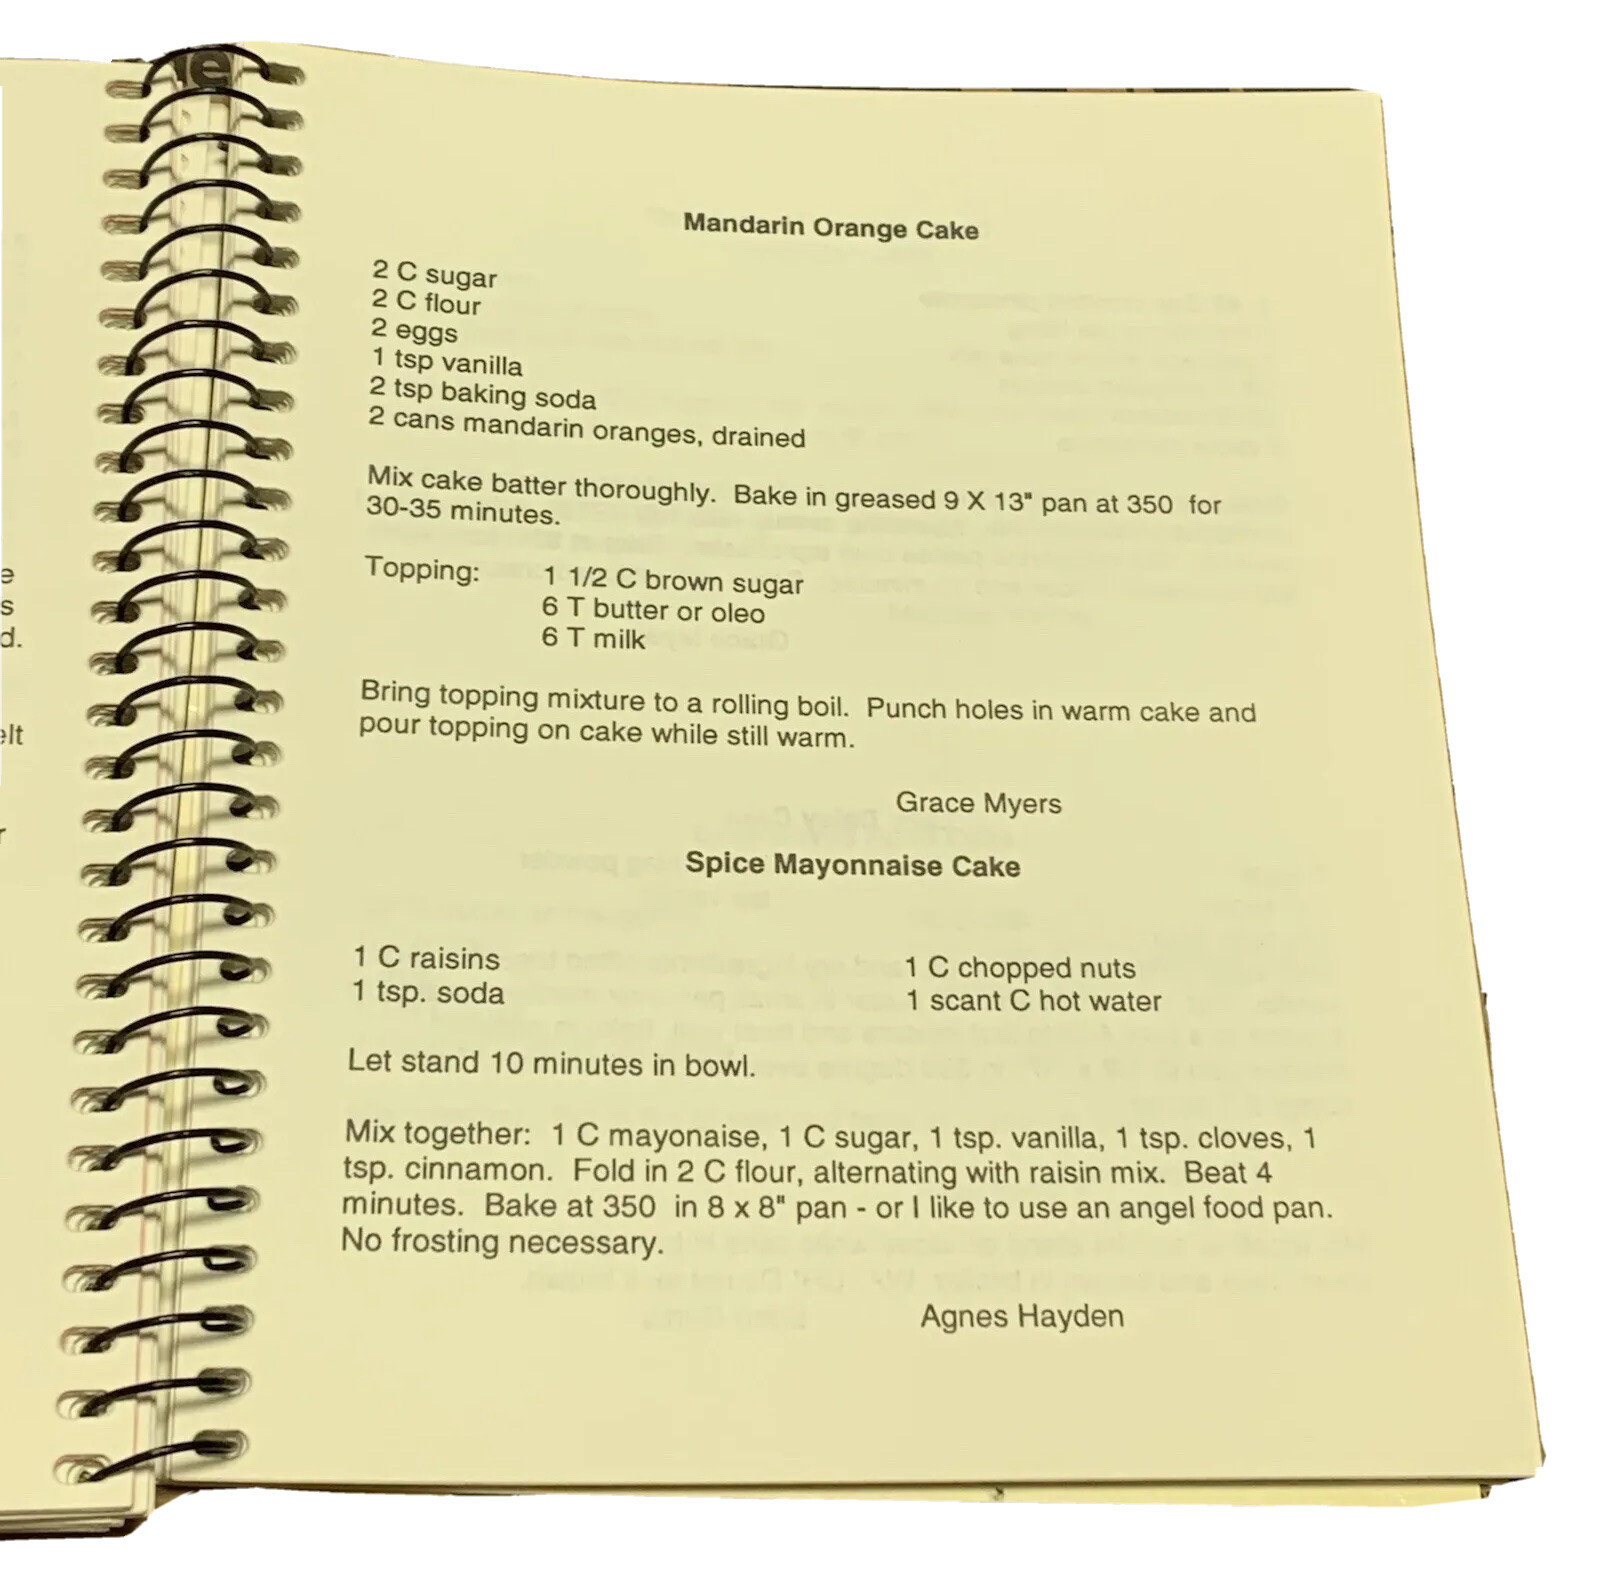 e
Mandarin Orange Cake
2 C sugar
2 C flour
2 eggs
1 tsp vanilla
2 tsp baking soda
2 cans mandarin oranges, drained
Mix cake batter thoroughly. Bake in greased 9 X 13" pan at 350 for
30-35 minutes.
Topping: 1 1/2 C brown sugar
6 T butter or oleo
6 T milk
Bring topping mixture to a rolling boil. Punch holes in warm cake and
pour topping on cake while still warm.
Grace Myers
Spice Mayonnaise Cake
1 C raisins 1 C chopped nuts
1 tsp. soda 1 scant C hot water
Let stand 10 minutes in bowl.
Mix together: 1 C mayonaise, 1 C sugar, 1 tsp. vanilla, 1 tsp. cloves, 1
tsp. cinnamon. Fold in 2 C flour, alternating with raisin mix. Beat 4
minutes. Bake at 350 in 8 x 8" pan - or I like to use an angel food pan.
No frosting necessary.
Agnes Hayden